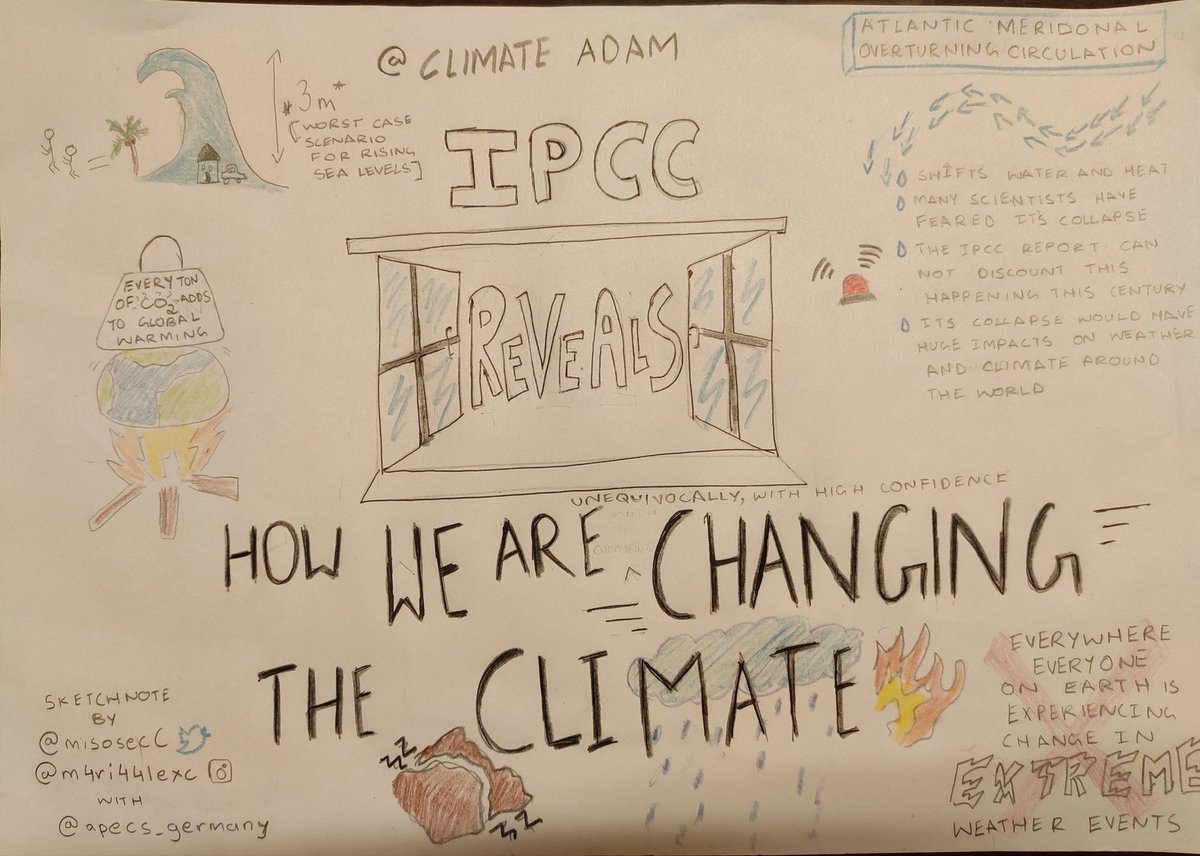 @ CLIMATE ADAM
IPCC
REVEALS
UNEQUIVOCALLY, WITH HIGH CONFIDENCE
HOW WE ARE ^ CHANGING
THE CLIMATE
*3m*
[WORST CASE
SCENARIO
FOR RISING
SEA LEVELS]
EVERY TON
OF CO2 ADDS
TO GLOBAL
WARMING
ATLANTIC MERIDONAL
OVERTURNING CIRCULATION
SHIFTS WATER AND HEAT
MANY SCIENTISTS HAVE
FEARED IT'S COLLAPSE
THE IPCC REPORT CAN
NOT DISCOUNT THIS
HAPPENING THIS CENTURY
ITS COLLAPSE WOULD HAVE
HUGE IMPACTS ON WEATHER
AND CLIMATE AROUND
THE WORLD
SKETCHNOTE
BY
@misosecC
@m4ri44lexc
WITH
@apecs_germany
EVERYWHERE
EVERYONE
ON EARTH IS
EXPERIENCING
CHANGE IN
EXTREME
WEATHER EVENTS